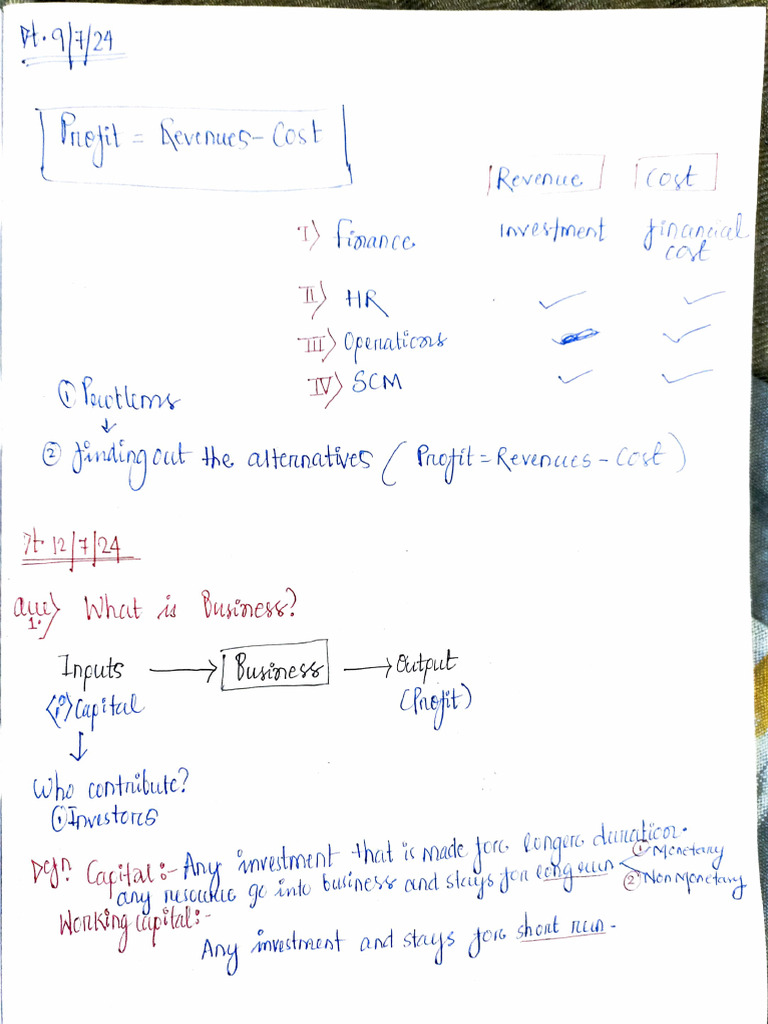 Dt. 9/7/24
Profit = Revenues - Cost
Revenue Cost
I) Finance investment financial cost
II) HR ✓ ✓
III) Operations ✓
IV) SCM ✓ ✓
① Problems
↓
② finding out the alternatives (Profit = Revenues - Cost)
Dt 12/7/24
Que 1.) What is Business?
Inputs → Business → Output
<i> Capital (Profit)
↓
Who contribute?
① Investors
Defn. Capital :- Any investment that is made for longer duration.
① Monetary
any resource go into business and stays for long run
② Non Monetary
Working Capital :-
Any investment and stays for short run.